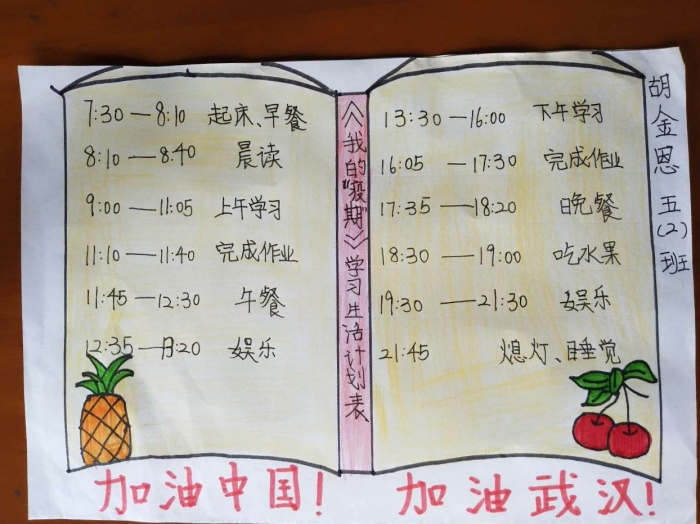 7:30—8:10 起床、早餐
8:10—8:40 晨读
9:00—11:05 上午学习
11:10—11:40 完成作业
11:45—12:30 午餐
12:35—13:20 娱乐
《我的"疫期"》学习生活计划表
13:30—16:00 下午学习
16:05—17:30 完成作业
17:35—18:20 晚餐
18:30—19:00 吃水果
19:30—21:30 娱乐
21:45 熄灯、睡觉
胡金恩 五(2)班
加油中国! 加油武汉!